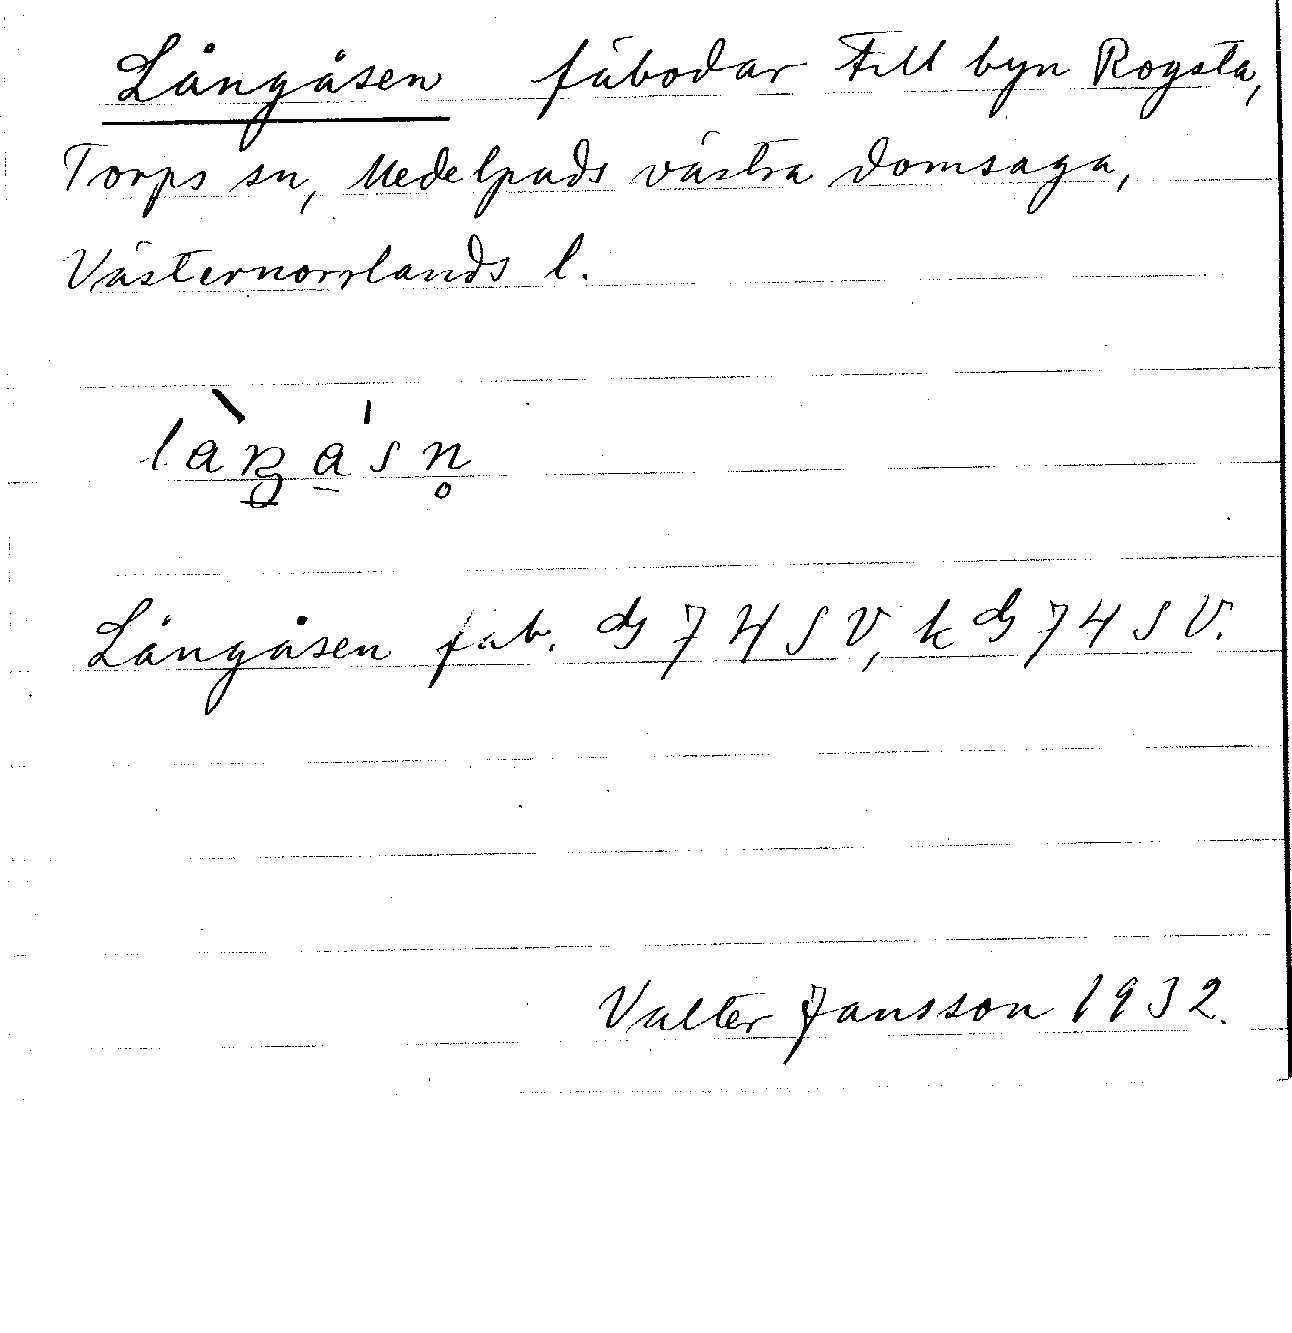 Långåsen fäbodar till byn Rogsta,
Torps sn, Medelpads västra domsaga,
Västernorrlands l.
Långåsen fäb. dg 74 SV, k dg 74 SV.
Valter Jansson 1932.